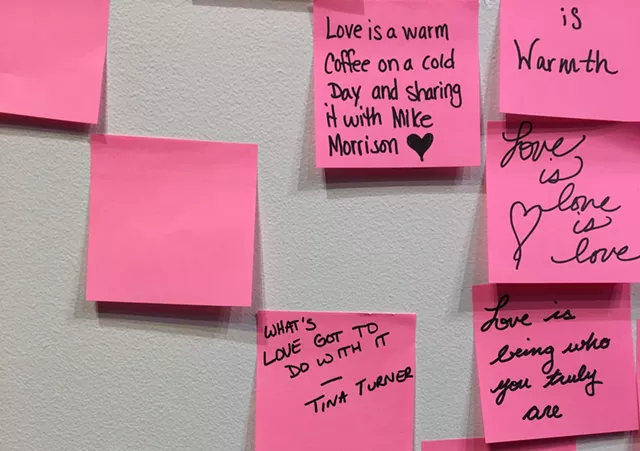 Love is a warm
Coffee on a cold
Day and sharing
it with Mike
Morrison
is
Warmth
Love
is
love
is
love
WHAT'S
LOVE GOT TO
DO WITH IT
—
TINA TURNER
Love is
being who
you truly
are